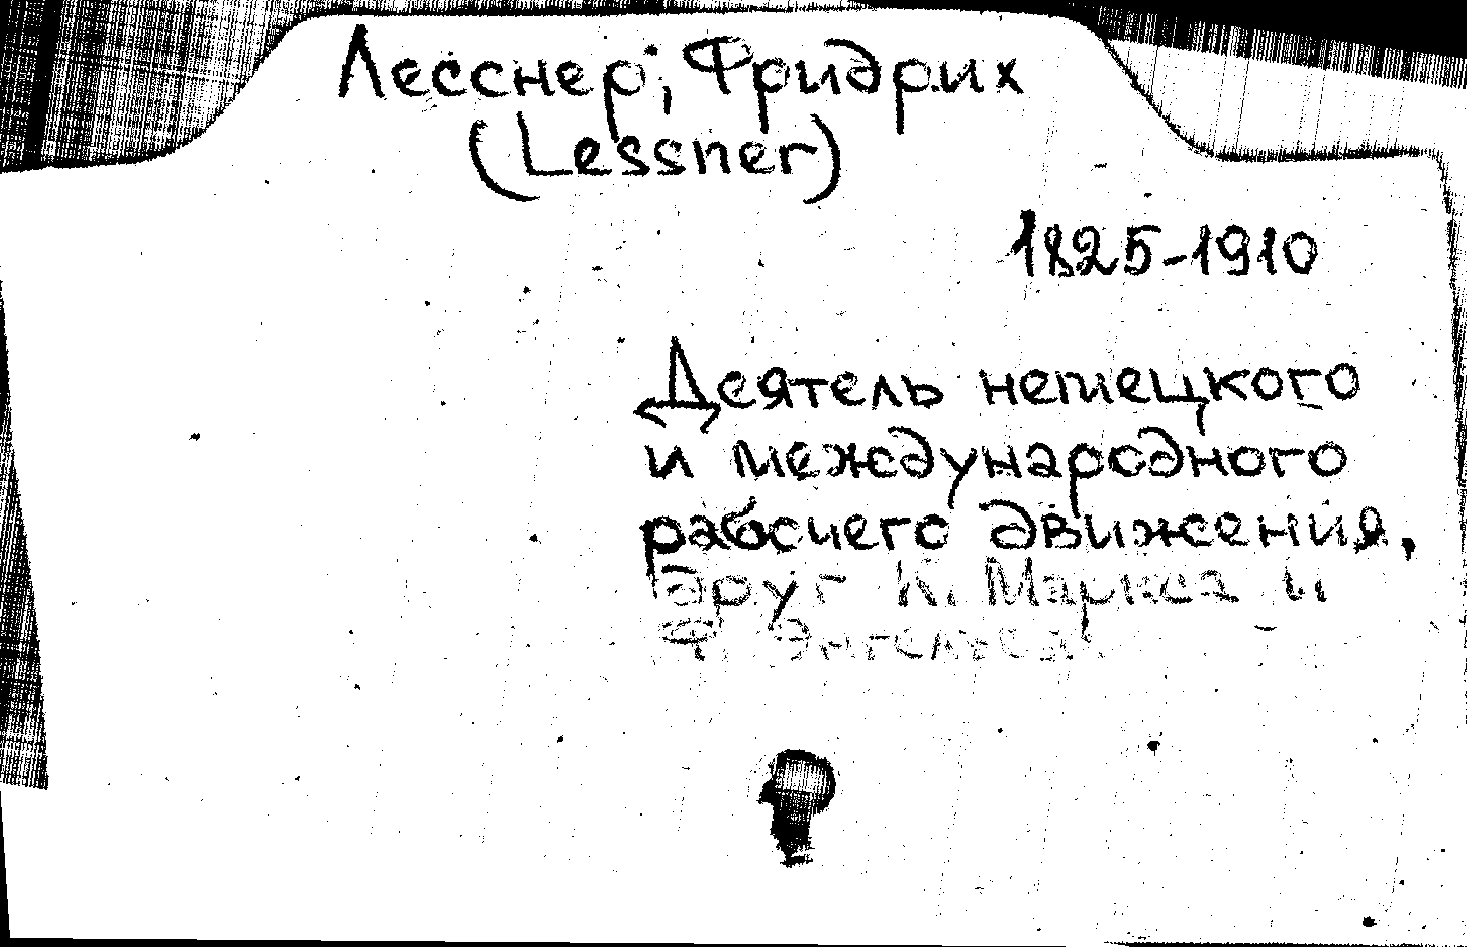 Лесснер, Фридрих
(Lessner)
1825-1910
Деятель немецкого
и международного
рабочего движения,
друг К. Маркса и
Ф. Энгельса.